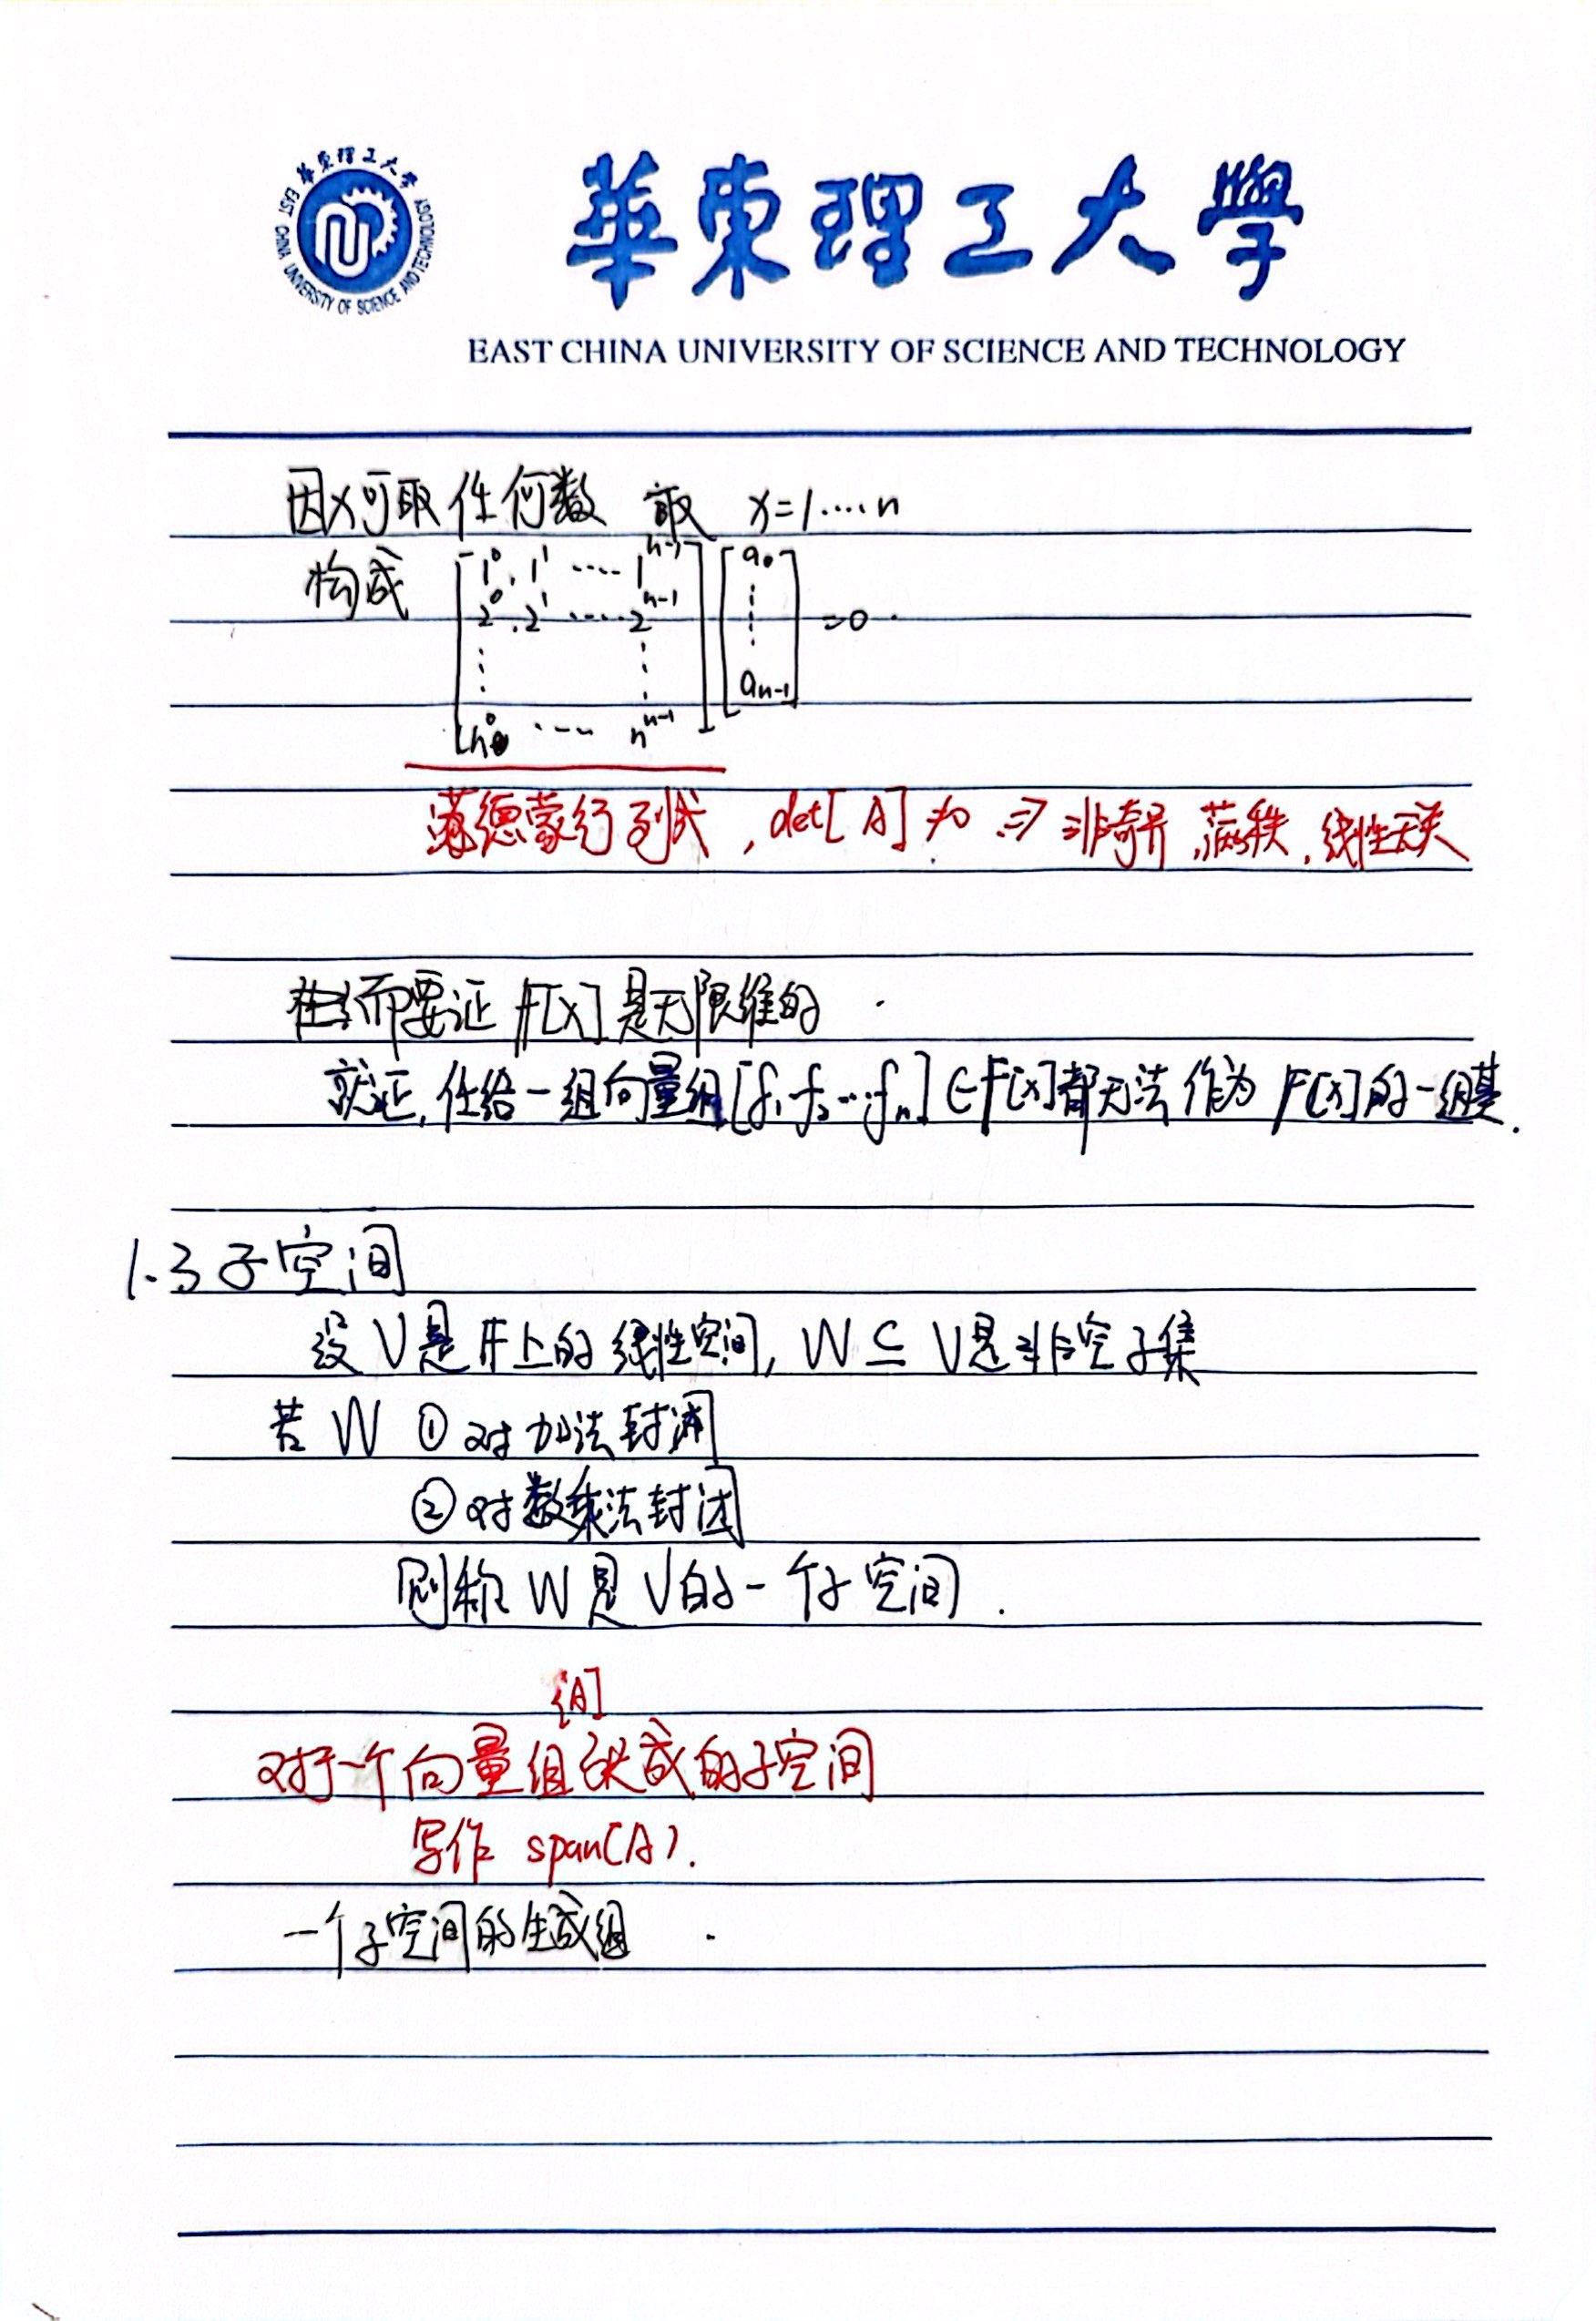 華東理工大學
EAST CHINA UNIVERSITY OF SCIENCE AND TECHNOLOGY
華東理工大学
EAST CHINA UNIVERSITY OF SCIENCE AND TECHNOLOGY
因x可取任何数 取 x=1....n
构成 [1⁰, 1¹ ···· 1ⁿ⁻¹ [a₀
2⁰, 2¹ ···· 2ⁿ⁻¹ ⋮ =0
⋮ ⋮ aₙ₋₁]
n⁰ ···· nⁿ⁻¹]
范德蒙行列式, det[A]≠0 => 非奇异, 满秩, 线性无关
而要证 F[x] 是无限维的
就证, 任给一组向量组[f₁ f₂ ... fₙ] ∈ F[x] 都无法作为 F[x]的一组基.
1.3 子空间
设 V是 F上的线性空间, W ⊆ V是非空子集
若 W ① 对加法封闭
② 对数乘法封闭
则称 W是 V的一个子空间.
{A]
对于一个向量组张成的子空间
写作 span(A).
一个子空间的生成组